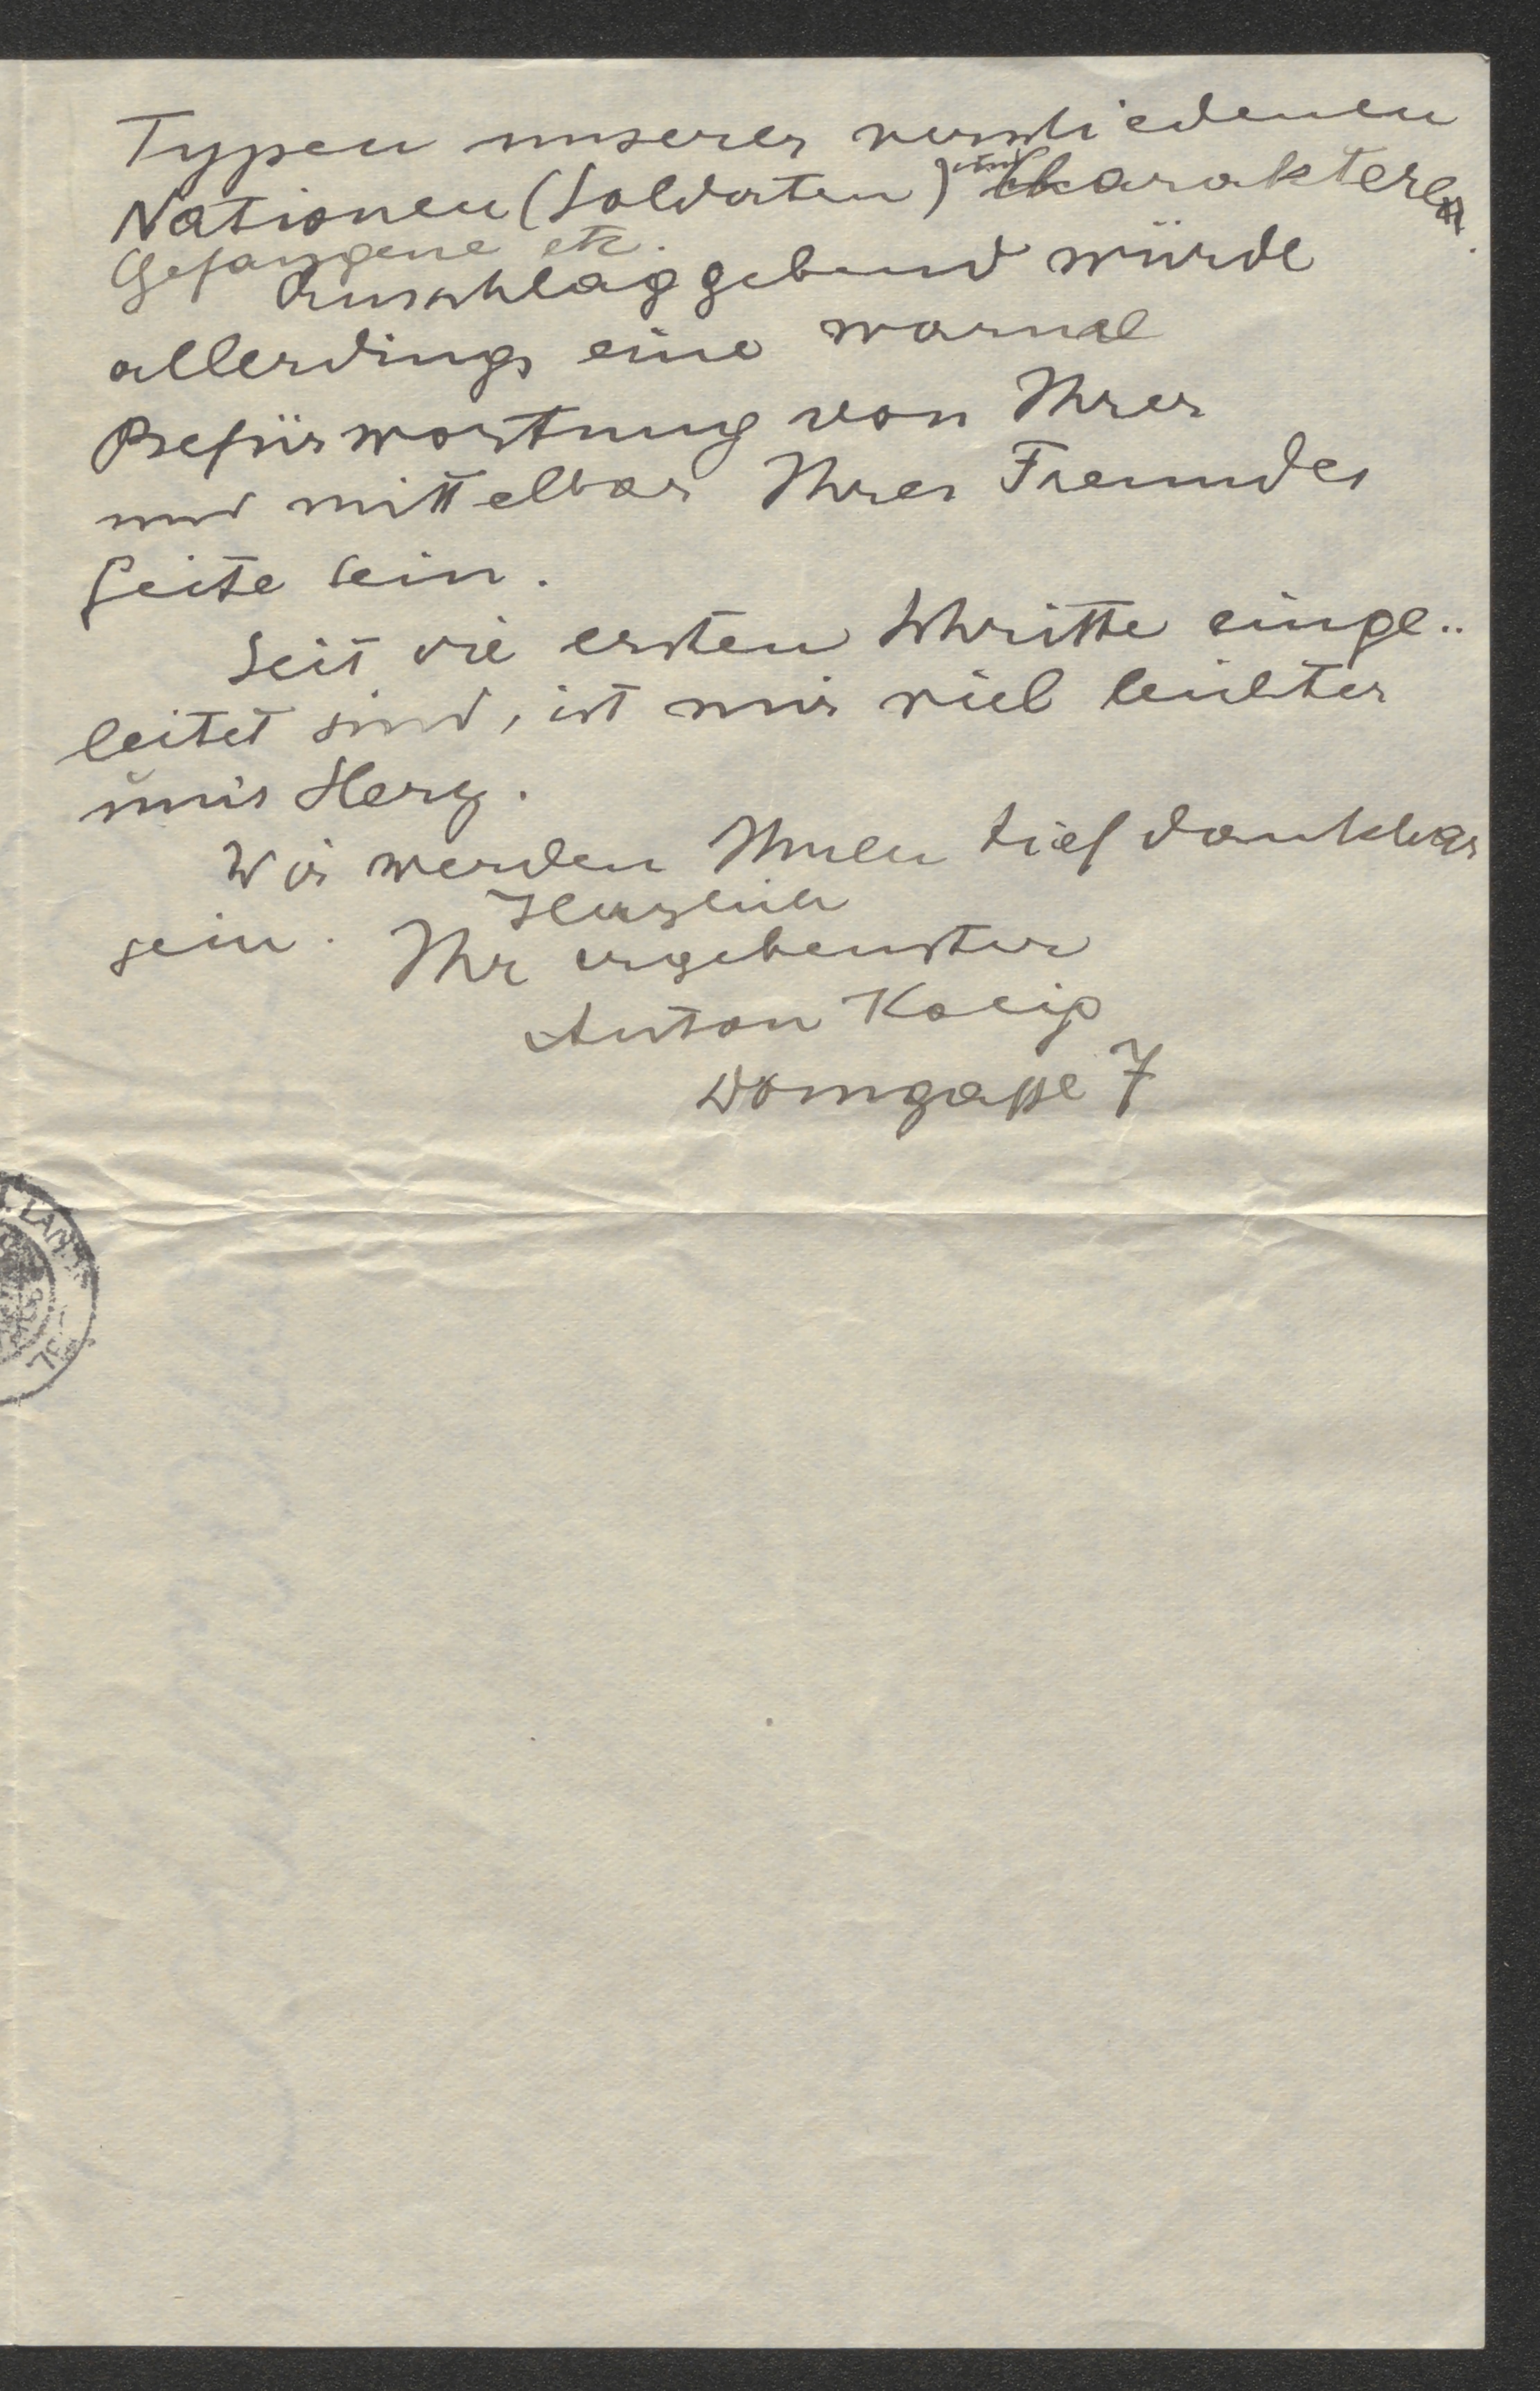 Typen unserer verschiedenen
Nationen (Soldaten) Charakteren.
Gefangene etc.
Ausschlaggebend würde
allerdings eine warme
Befürwortung von Ihrer
und mittelbar Ihres Freundes
Seite sein.
Seit die ersten Schritte einge-
leitet sind, ist mir viel leichter
ums Herz.
Wir werden Ihnen tief dankbar
sein. Herzlich
Ihr ergebenster
Anton Kolig
Domgasse 7